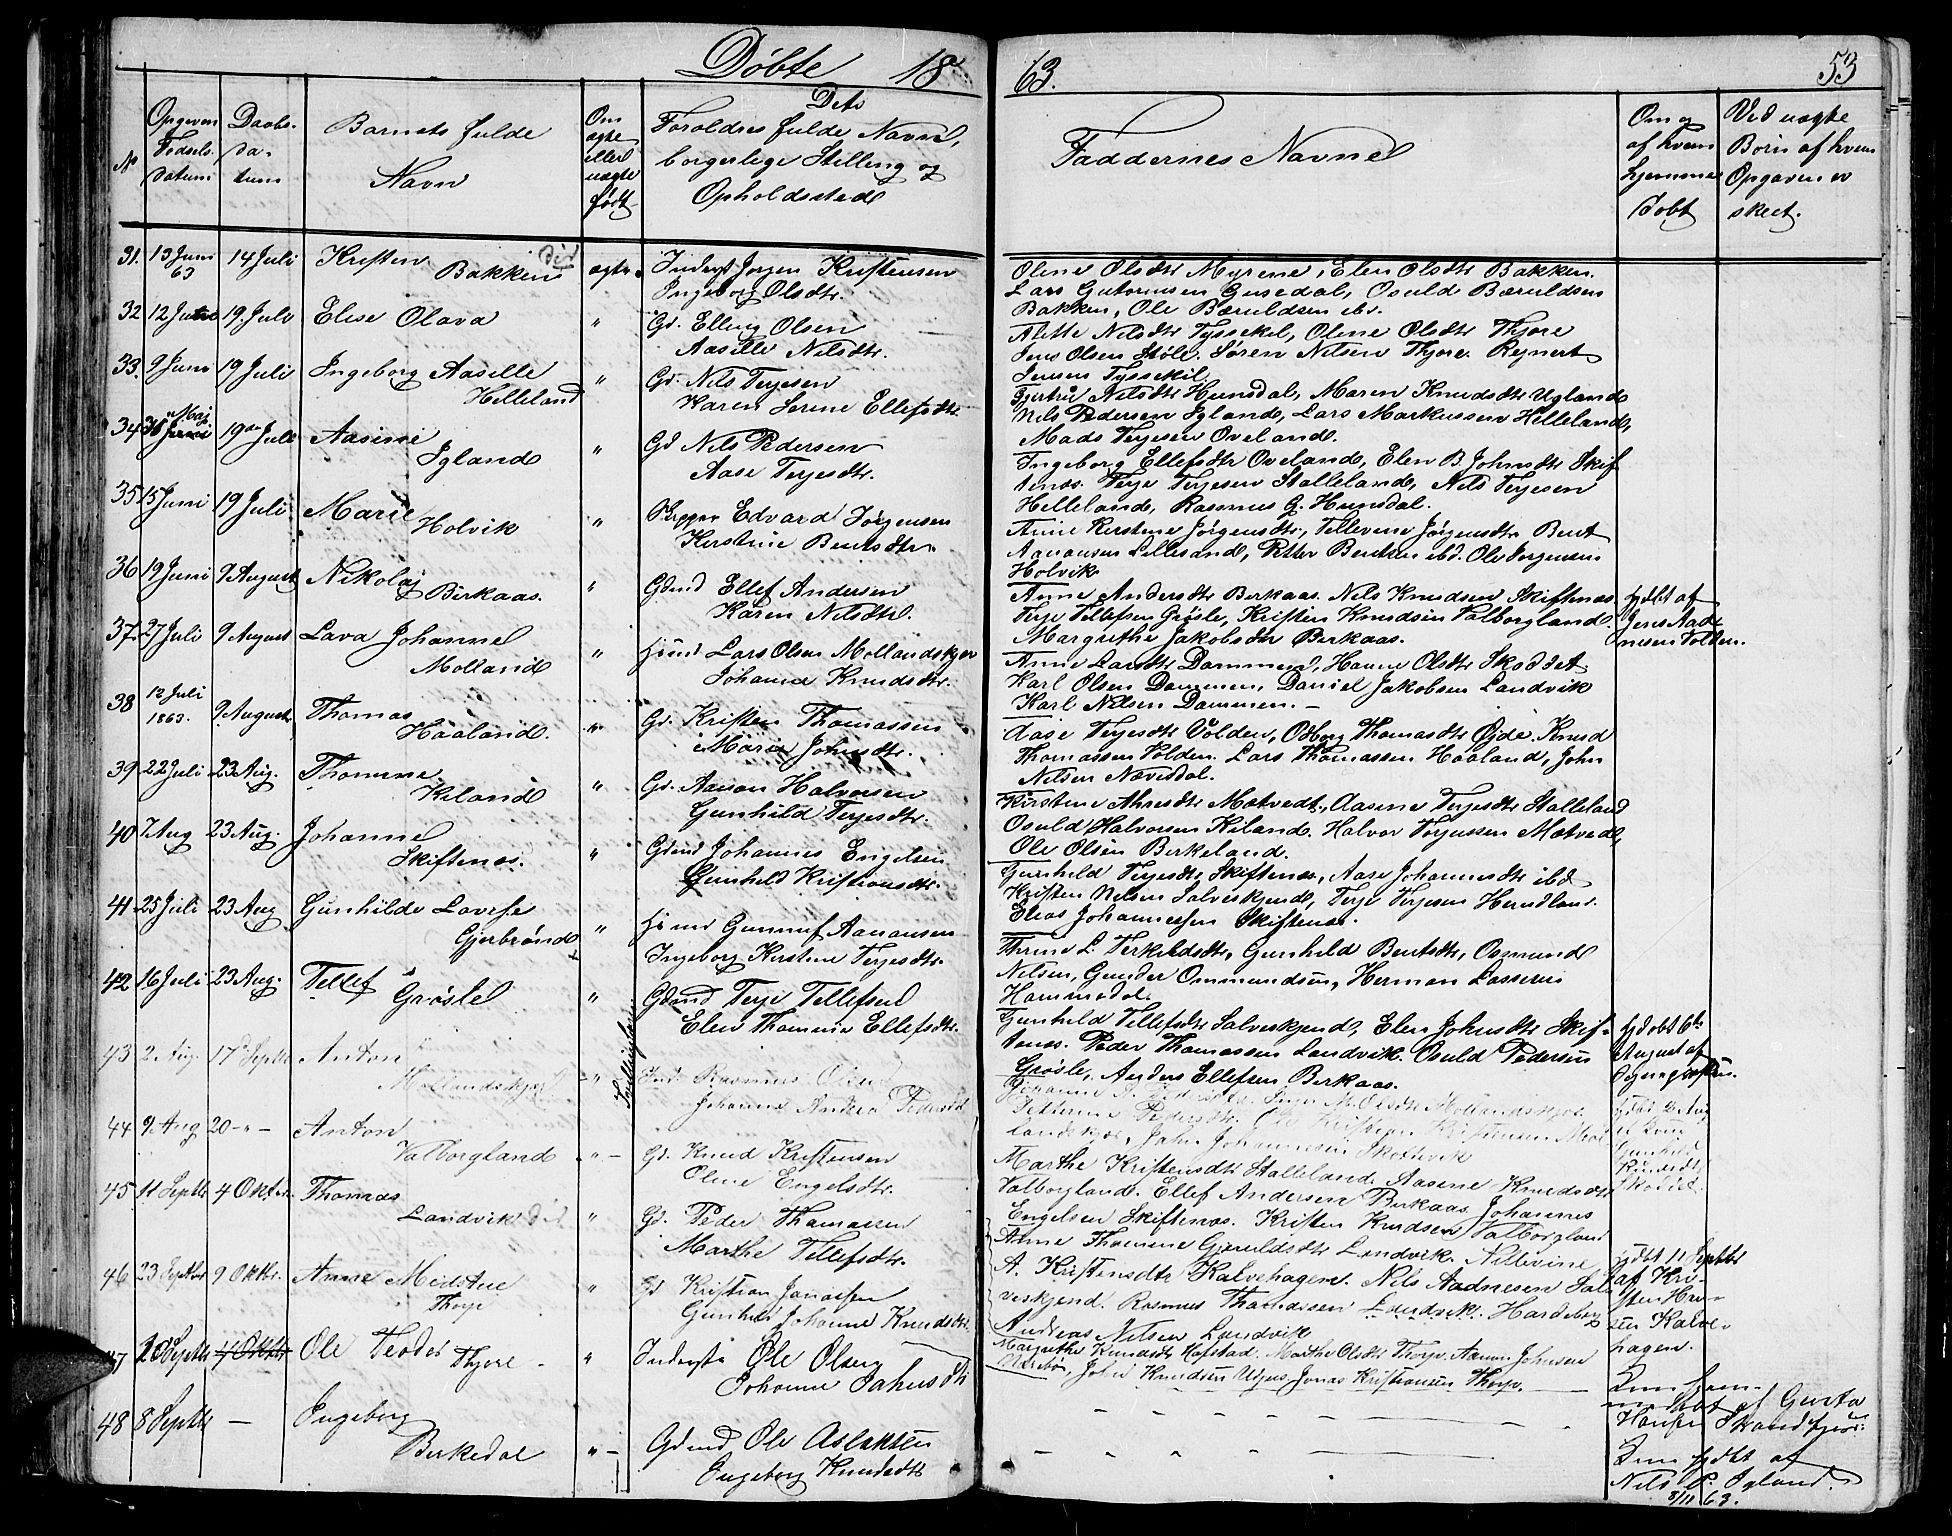 Døbte 18
63.
53
No
Opgiven Fødsels datum
Daabs-datum
Barnets fulde Navn
Om ægte eller uægte født
Dets Foreldres fulde Navne, borgerlige Stilling og Opholdssted
Faddernes Navne
Om og af hvem hjemmedøbt
Ved uægte Børn af hvem Opgaven er skeet.
31. 13 Juni 63 14 Juli Kristen Bakken ægte Inderst Jørgen Kristensen
Ingeborg Olsdtr.
Olene Olsdtr Myrene, Elen Olsdtr Bakken.
Lars Gutormsen Gusedal, Osuld Bæruldsen
Bakken, Ole Bæruldsen ibd.
32 12 Juni 19. Juli Elise Olava " Gd. Elling Olsen
Aaselle Nilsdtr.
Alette Nilsdtr Tyssekil, Olene Olsdtr Thjore
Jens Olsen Støle. Søren Nilsen Thjore. Rejnert
Jensen Tyssekil
33. 9 Juni 19 Juli Ingeborg Aaselle Helleland " Gd. Nils Terjesen
Karen Serine Ellefsdtr
Gjertru Nilsdtr Hunsdal, Maren Knudsdtr Ugland
Nils Pedersen Igland, Lars Markussen Helleland,
Mads Terjesen Oveland.
34 31 Maj 19 Juli Aasine Igland " Gd Nils Pedersen
Aase Terjesdtr.
Ingeborg Ellefsdtr Oveland, Elen B. Johnsdtr Skif
tenæs. Terje Terjesen Stalleland, Nils Terjesen
Helleland, Rasmus G. Hunsdal.
35 15 Juni 19 Juli Marie Holvik " Skipper Edvard Jørgensen
Kerstine Bentsdtr.
Anne Kerstine Jørgensdtr, Tellevine Jørgensdtr Bent
Aanonsen Lillesand, Peter Bentsen ibd. Ole Jørgensen
Holvik
36 19 Juni 9 August Nikolaj Birkaas. " Gdmd Ellef Andersen
Karen Nilsdtr.
Anne Andersdtr Berkaas. Nils Knudsen Skiftenæs.
Terje Tellefsen Grøsle, Kristen Knudsen Valborgland
Margrethe Jakobsdtr Berkaas.
hjdøbt af Jens Aadnesen Volden.
37. 27 Juli 9 August Lava Johanne Molland " Hsmd Lars Olsen Mollandskjær
Johanne Knudsdtr.
Anne Larsdtr Dammen, Hanne Olsdtr Skoddet
Karl Olsen Dammen, Daniel Jakobsen Landvik
Karl Nilsen Dammen. —
38 12 Juli 1863. 9 August Thomas Haaland. " Gd. Kristen Thomassen
Marie Johnsdtr.
Aase Terjesdtr Volden, Odborg Thomasdtr Øjde. Knud
Thomassen Volden. Lars Thomassen Haaland, John
Nilsen Næveisdal.
39 22 Juli 23 Aug. Thomine Kiland " Gd. Aanon Halvorsen
Gunhild Terjesdtr.
Kirstine Ahresdtr Mætvedt, Aasene Terjesdtr Stalleland
Osuld Halvorsen Kiland. Halvor Torjussen Mætved,
Ole Olsen Berkeland.
40 7 Aug 23 Aug. Johanne Skiftenæs. " Gdmd Johannes Engelsen
Gunhild Kristiansdtr.
Gunhild Terjesdtr Skiftenæs, Aase Johannesdtr ibd
Kristen Nilsen Salveskjend, Terje Terjesen Hæredland.
Elias Johannessen Skiftenæs.
41 25 Juli 23 Aug Gunhilde Lovise Gjerbrønd " Hsmd Gunnuf Aanonsen
Ingeborg Kerstine Terjesdtr.
Thrine L. Terkildsdtr, Gunhild Bentsdtr, Osmund
Nilsen, Gunder Ommundsen, Herman Lassesen
Hammedal.
42 16 Juli 23 Aug. Tellef Grøsle " Gdmd Terje Tellefsen
Elen Thomine Ellefsdtr.
Gunhild Tellefsdtr Salveskjend, Elen Johnsdtr Skif-
tenæs. Peder Thomassen Landvik. Osuld Pedersen
Grøsle, Anders Ellefsen Berkaas.
hjdøbt 6te August af
43 2 Aug. 17 Septbr Anton Mollandskjær " Ind. Rasmus Olsen
Johanne Andrea Pedersdtr
Tvillinger
44 9 Aug 20 -"- Anton Valborgland " Gd. Knud Kristensen
Oline Engelsdtr.
Marthe Kristensdtr Stalleland. Aasene Knudsdtr
Valborgland. Ellef Andersen Berkaas, Johannes
Engelsen Skiftenæs. Kristen Knudsen Valborgland
45 11 Septbr 4 Oktbr Thomas Landvik " Gd. Peder Thomassen
Marthe Tellefsdtr.
Anne Thomine Gjeruldsdtr Landvik. Nellevine
A. Kristensdtr Kalvehagene. Nils Aadnesen Sal
veskjend. Rasmus Thomassen Landvik. Hardeberg
Andreas Nilsen Landvik
hjdøbt 11 Septbr af Kristen Kalvehagen.
46 23 Septbr 9 Oktbr. Anne Thorje " Gd Kristian Jonassen
Gunhild Johanne Knudsdtr.
Margrethe Knudsdtr Hofstad. Marthe Olsdtr Thorp. Aanon Johnsen
Nærebø, John Knudsen Ugjus, Jonas Kristiansen Thorp.
47 20 Septbr 4 Oktbr Ole Teodor Thjore — " Inderste Ole Olsen
Johanne Johnsdtr
døbt af Hansen
48 8 Septbr — Ingeborg Berkedal " — Gdmd Ole Aslaksen
Ingeborg Knudsdtr
hjdøbt af Nils P. Igland.
8/11 63.